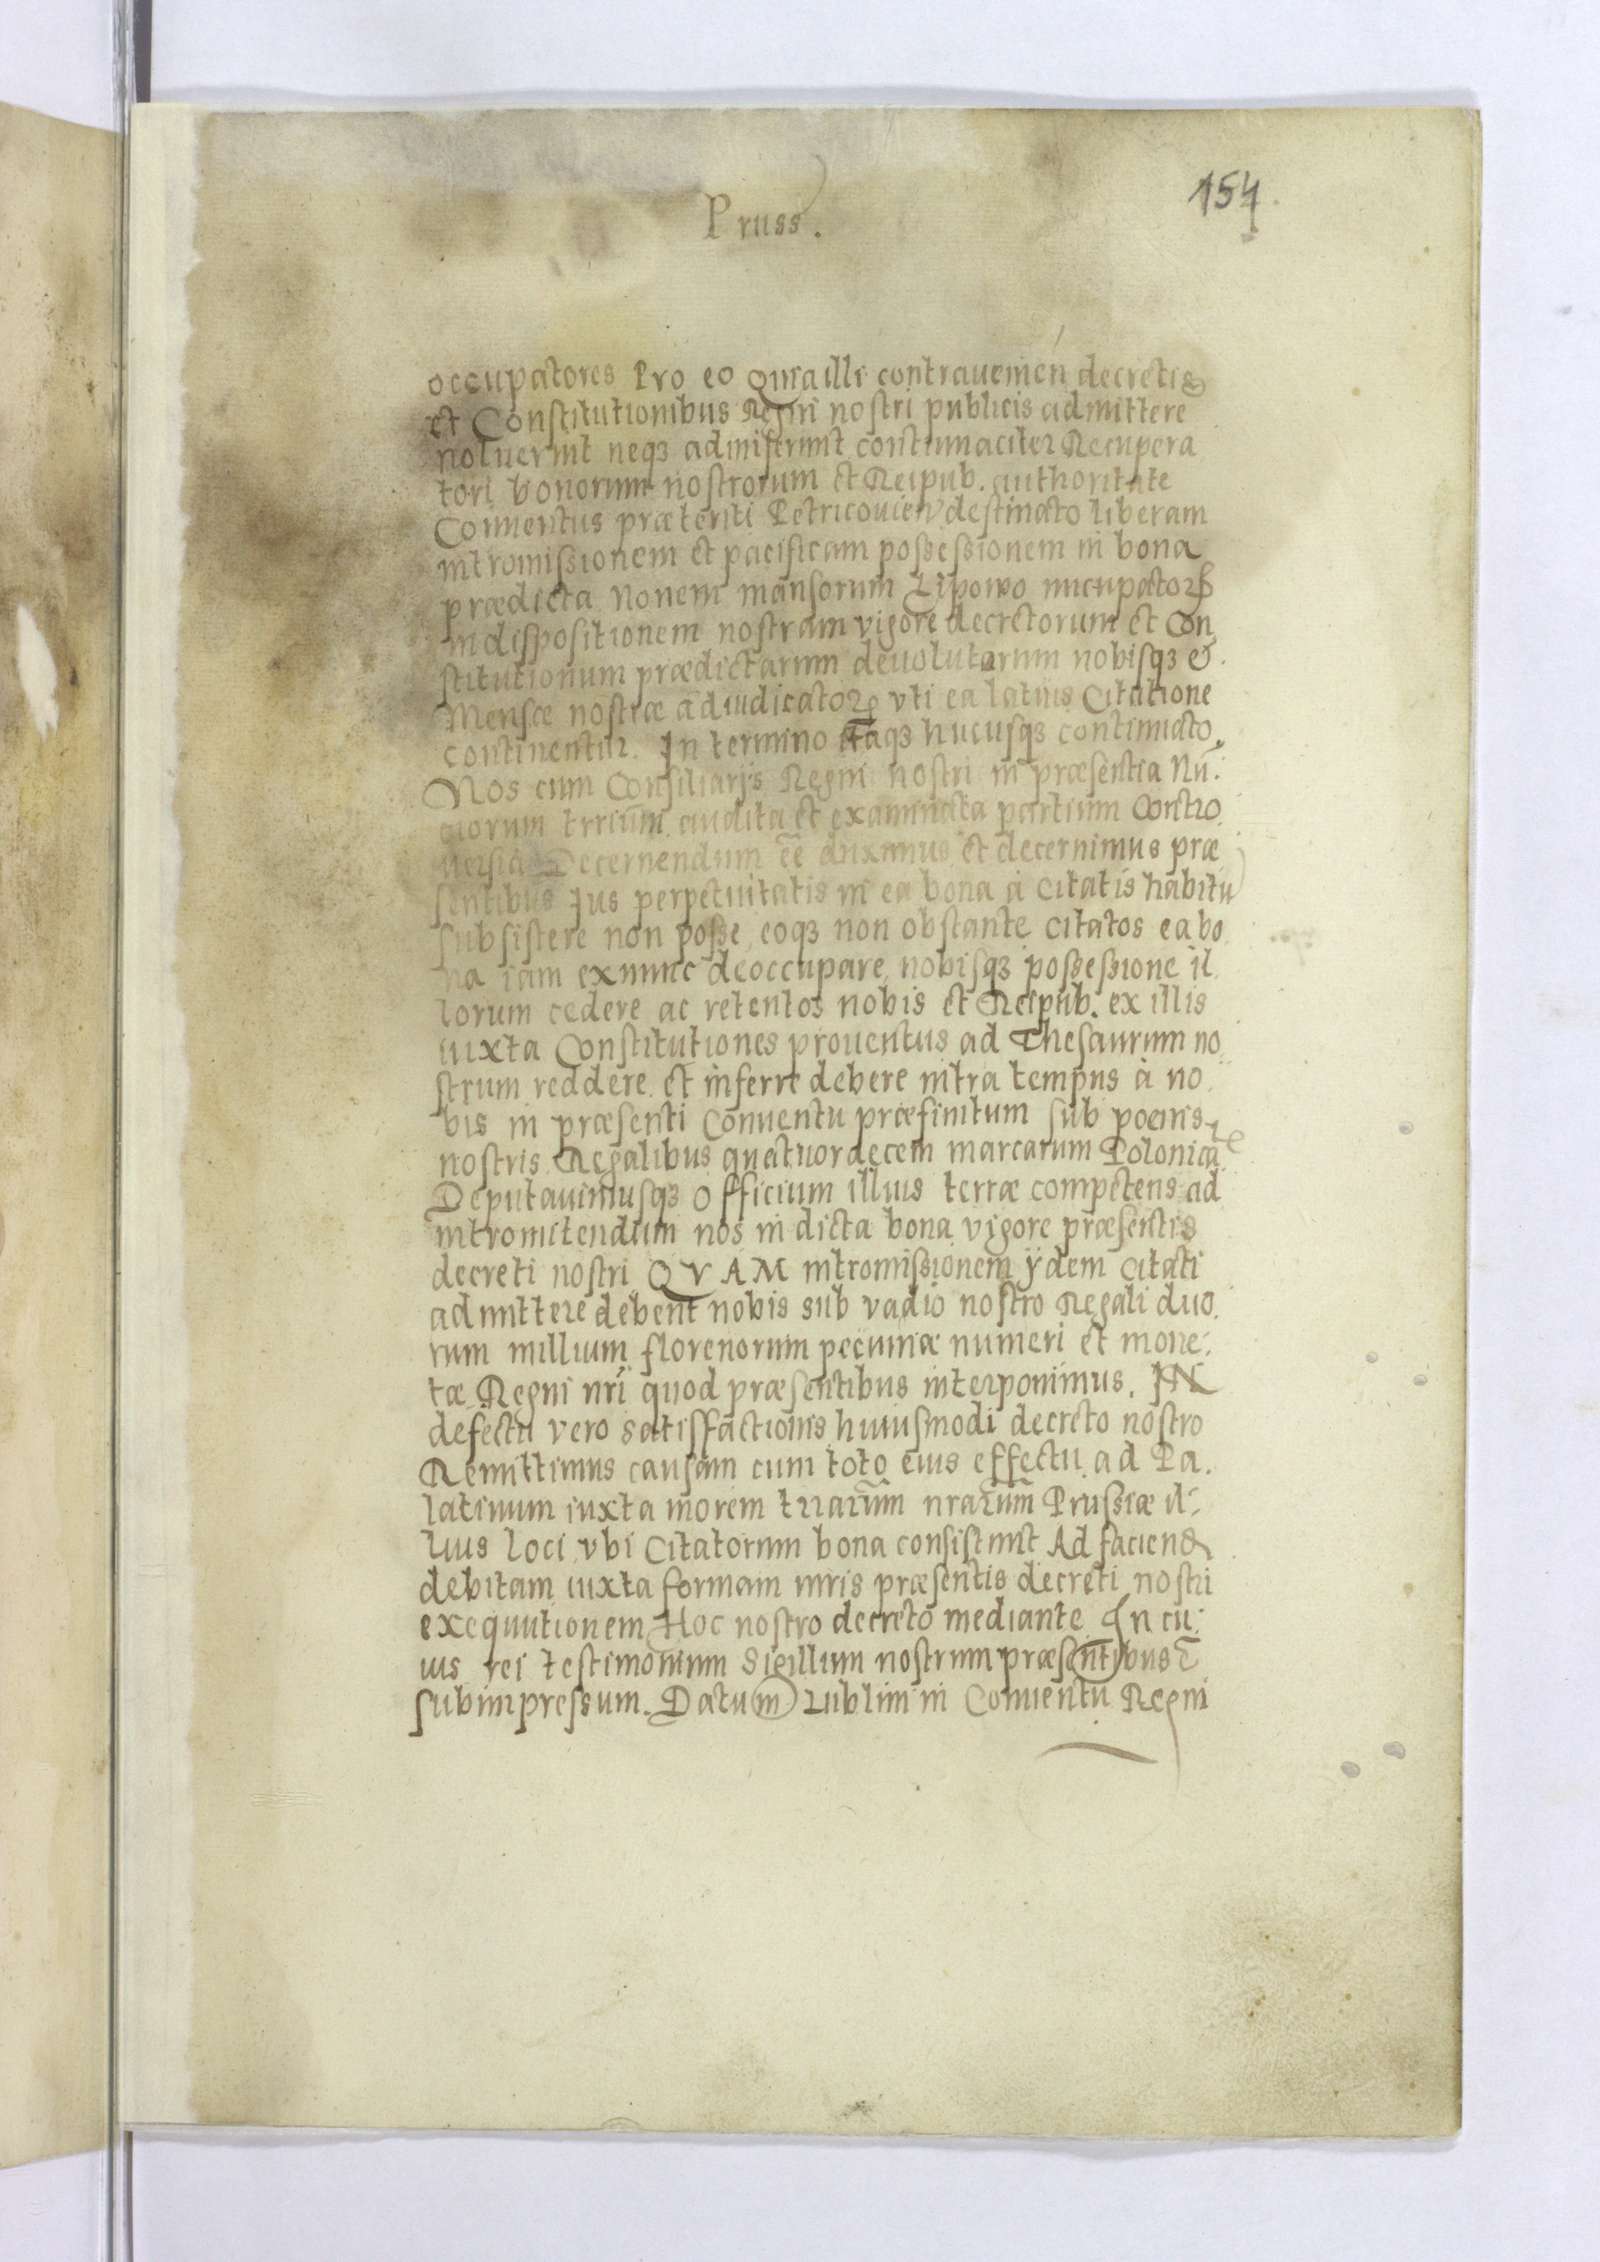 154
Pruss.
occupatores Pro eo Quia illi contrauenien decretis
et Constitutionibus Regni nostri publicis admittere
noluerint neqꝫ admiserunt contumaciter Recupera
tori bonorum nostrorum et Reipub. authoritate
Conuentus præteriti Petricouien destinato liberam
intromissionem et pacificam possessionem in bona
prædicta Nouem mansorum Lipowo nucupatoꝝ
in dispositionem nostram vigore decretorum et Con
stitutionum prædictarum deuolutarum nobisqꝫ &
Mensæ nostræ adiudicatoꝝ vti ea latius Citatione
continentur. In termino itaqꝫ hucusqꝫ continuato.
Nos cum Consiliarijs Regni nostri in præsentia Nū:
ciorum trrium audita et examinata partium Contro
uersia Decernendum eē duximus et decernimus præ
sentibus Ius perpetuitatis in ea bona à citatis habitu
subsistere non posse, eoqꝫ non obstante citatos ea bo
na iam exnunc deoccupare, nobisqꝫ possessione il
lorum cedere ac retentos nobis et Reipub. ex illis
iuxta Constitutiones prouentus ad Thesaurum no
strum reddere et inferre debere intra tempus à no
bis in præsenti Conuentu præfinitum sub poenis
nostris Regalibus quatuordecem marcarum Polonica
Deputauimusqꝫ Officium illius terræ competens ad
intromitendum nos in dicta bona vigore præsentis
decreti nostri QVAM intromissionem ÿdem citati
admittere debent nobis sub vadio nostro Regali duo
rum millium florenorum pecuniæ numeri et mone:
tæ Regni nri quod præsentibus interponimus. IN
defectu vero satisfactionis huiusmodi decreto nostro
Remittimus causam cum toto eius effectu ad Pa.
latinum iuxta morem trrarum nrarum Prussiæ il:
lius loci vbi Citatorum bona consistunt Ad faciend
debitam iuxta formam iuris præsentis decreti nostri
exequutionem Hoc nostro decreto mediante In cu:
ius rei testimonium Sigillum nostrum præsentibus
subimpressum. Datum Lublini in Conuentu Regni